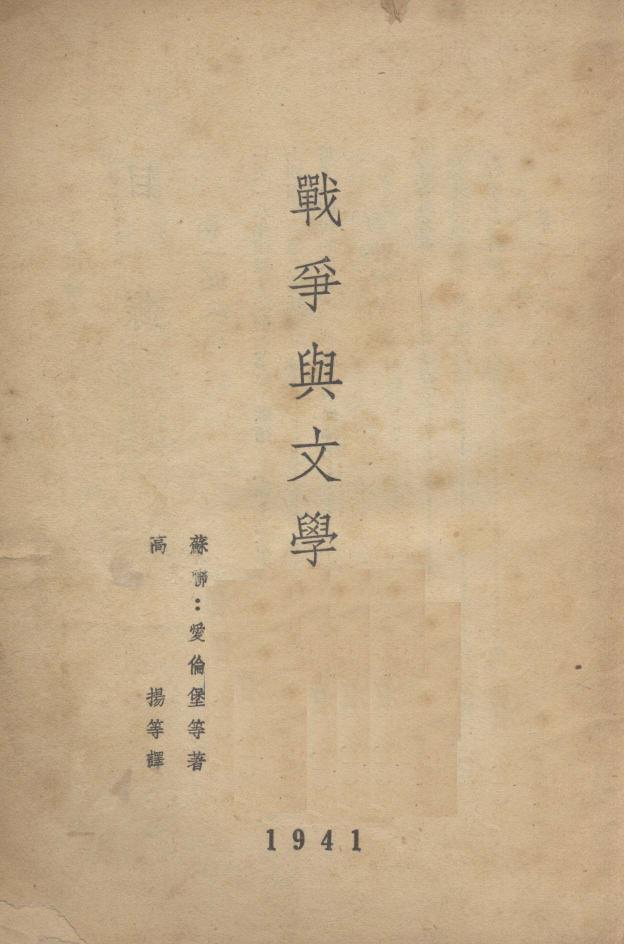 戰爭與文學
蘇聯：愛倫堡等著
高　揚等譯
1941